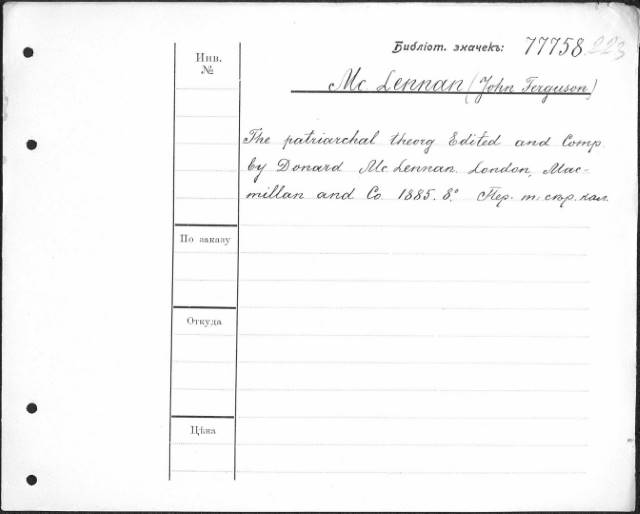 Библіот. значекъ: 77758 223
Инв.
№
Mc Lennan (John Ferguson)
The patriarchal theorg Edited and Comp.
by Donard Mc Lennan. London, Mac-
millan and Co. 1885. 8.° Пер. т. сѣр. кал.
По заказу
Откуда
Цѣна